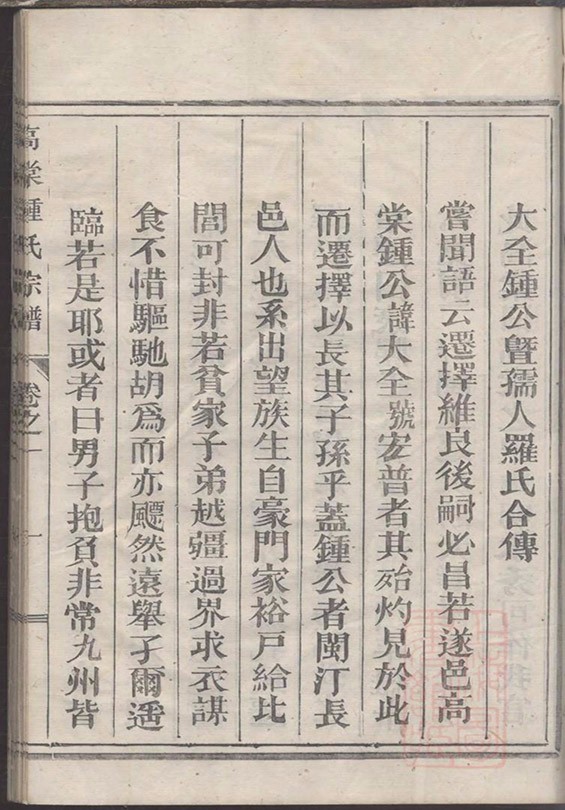 大全鍾公暨孺人羅氏合傳
嘗聞語云遷擇維良後嗣必昌若遂邑高
棠鍾公諱大全號宏普者其殆灼見於此
而遷擇以長其子孫乎蓋鍾公者閩汀長
邑人也系出望族生自豪門家裕戶給比
閭可封非若貧家子弟越疆過界求衣謀
食不惜驅馳胡爲而亦飄然遠舉孑爾遙
臨若是耶或者曰男子抱負非常九州皆
高棠鍾氏宗譜
卷之一